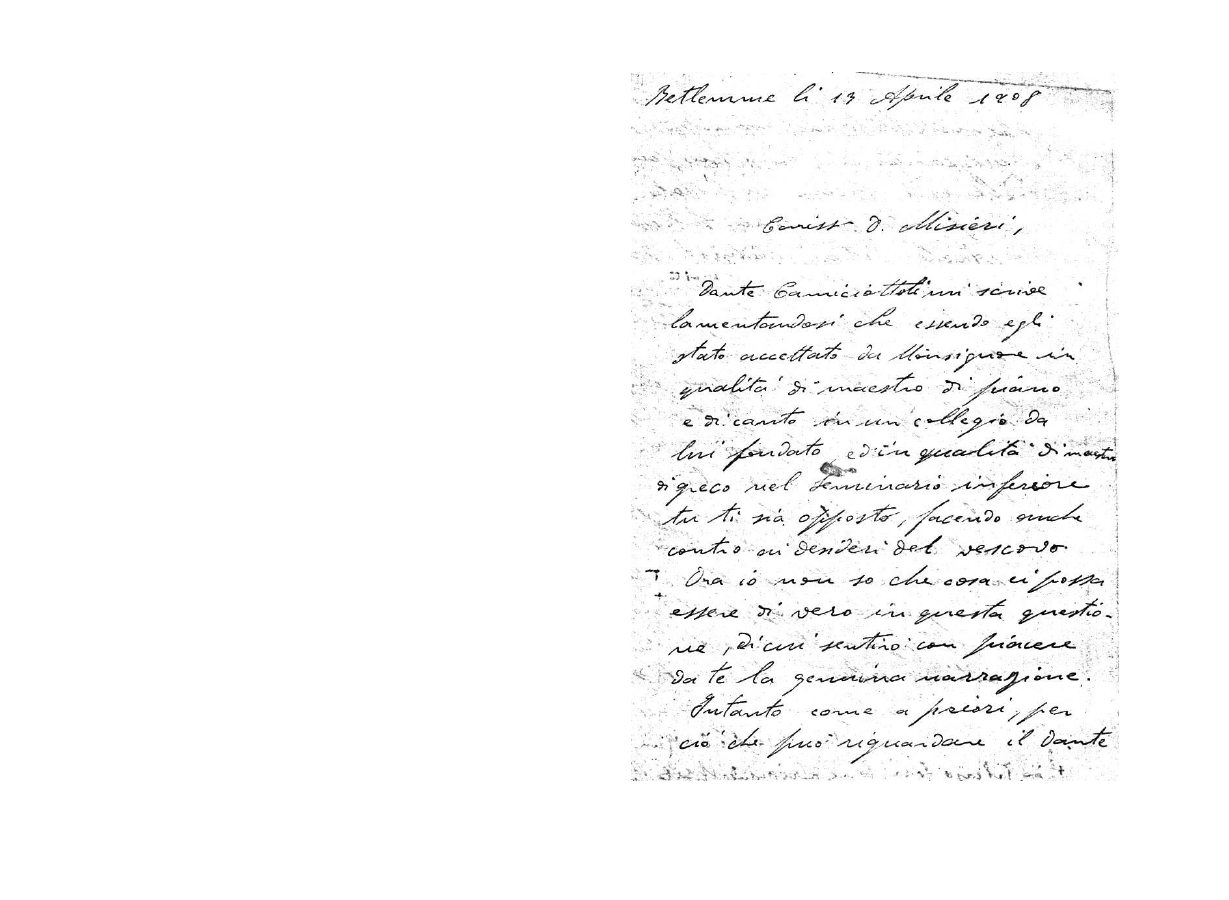 Betlemme li 13 Aprile 1908
Cariss D. Misieri,
Dante Camiciottoli mi scrive
lamentandosi che essendo egli
stato accettato da Monsignore in
qualità di maestro di piano
e di canto in un collegio da
lui fondato, ed in qualità di maestro
di greco nel Seminario inferiore
tu ti sia opposto, facendo anche
contro ai desideri del vescovo.
Ora io non so che cosa ci possa
essere di vero in questa questio-
ne, di cui sentirò con piacere
da te la genuina narrazione.
Intanto come a priori, per
ciò che può riguardare il Dante